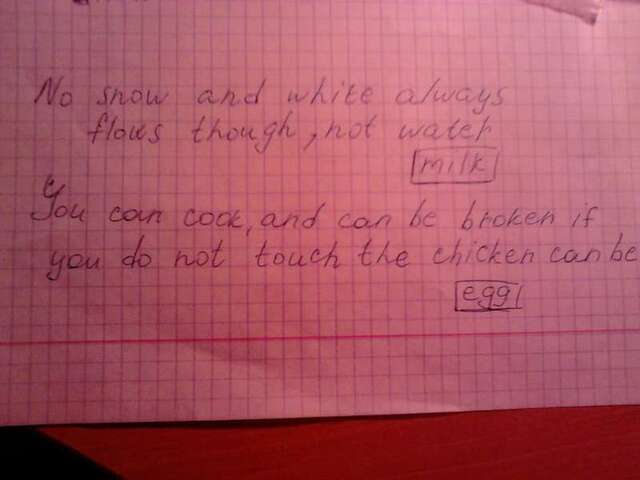 No snow and white always
flows though, not water
milk
You can cook, and can be broken if
you do not touch the chicken can be
egg